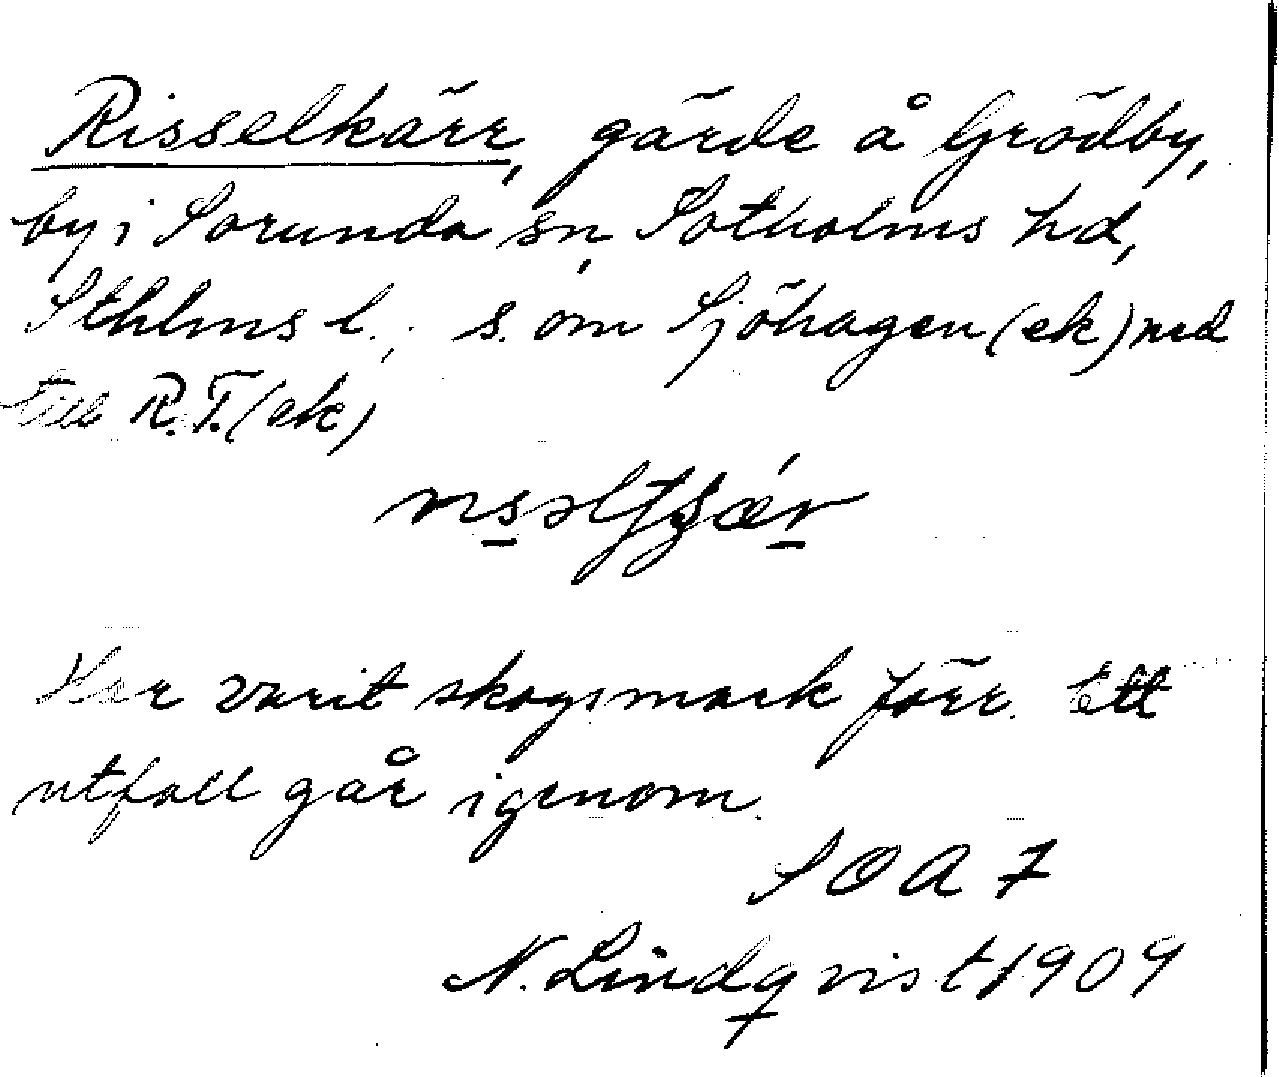 Risselkärr, gärde å Grödby,
by i Sorunda sn, Sotholms hd,
Sthlms l.; s. om Sjöhagen (ek) ned
till R.T. (ek)
Har varit skogsmark förr. Ett
utfall går igenom.
SOA 7
N. Lindqvist 1909